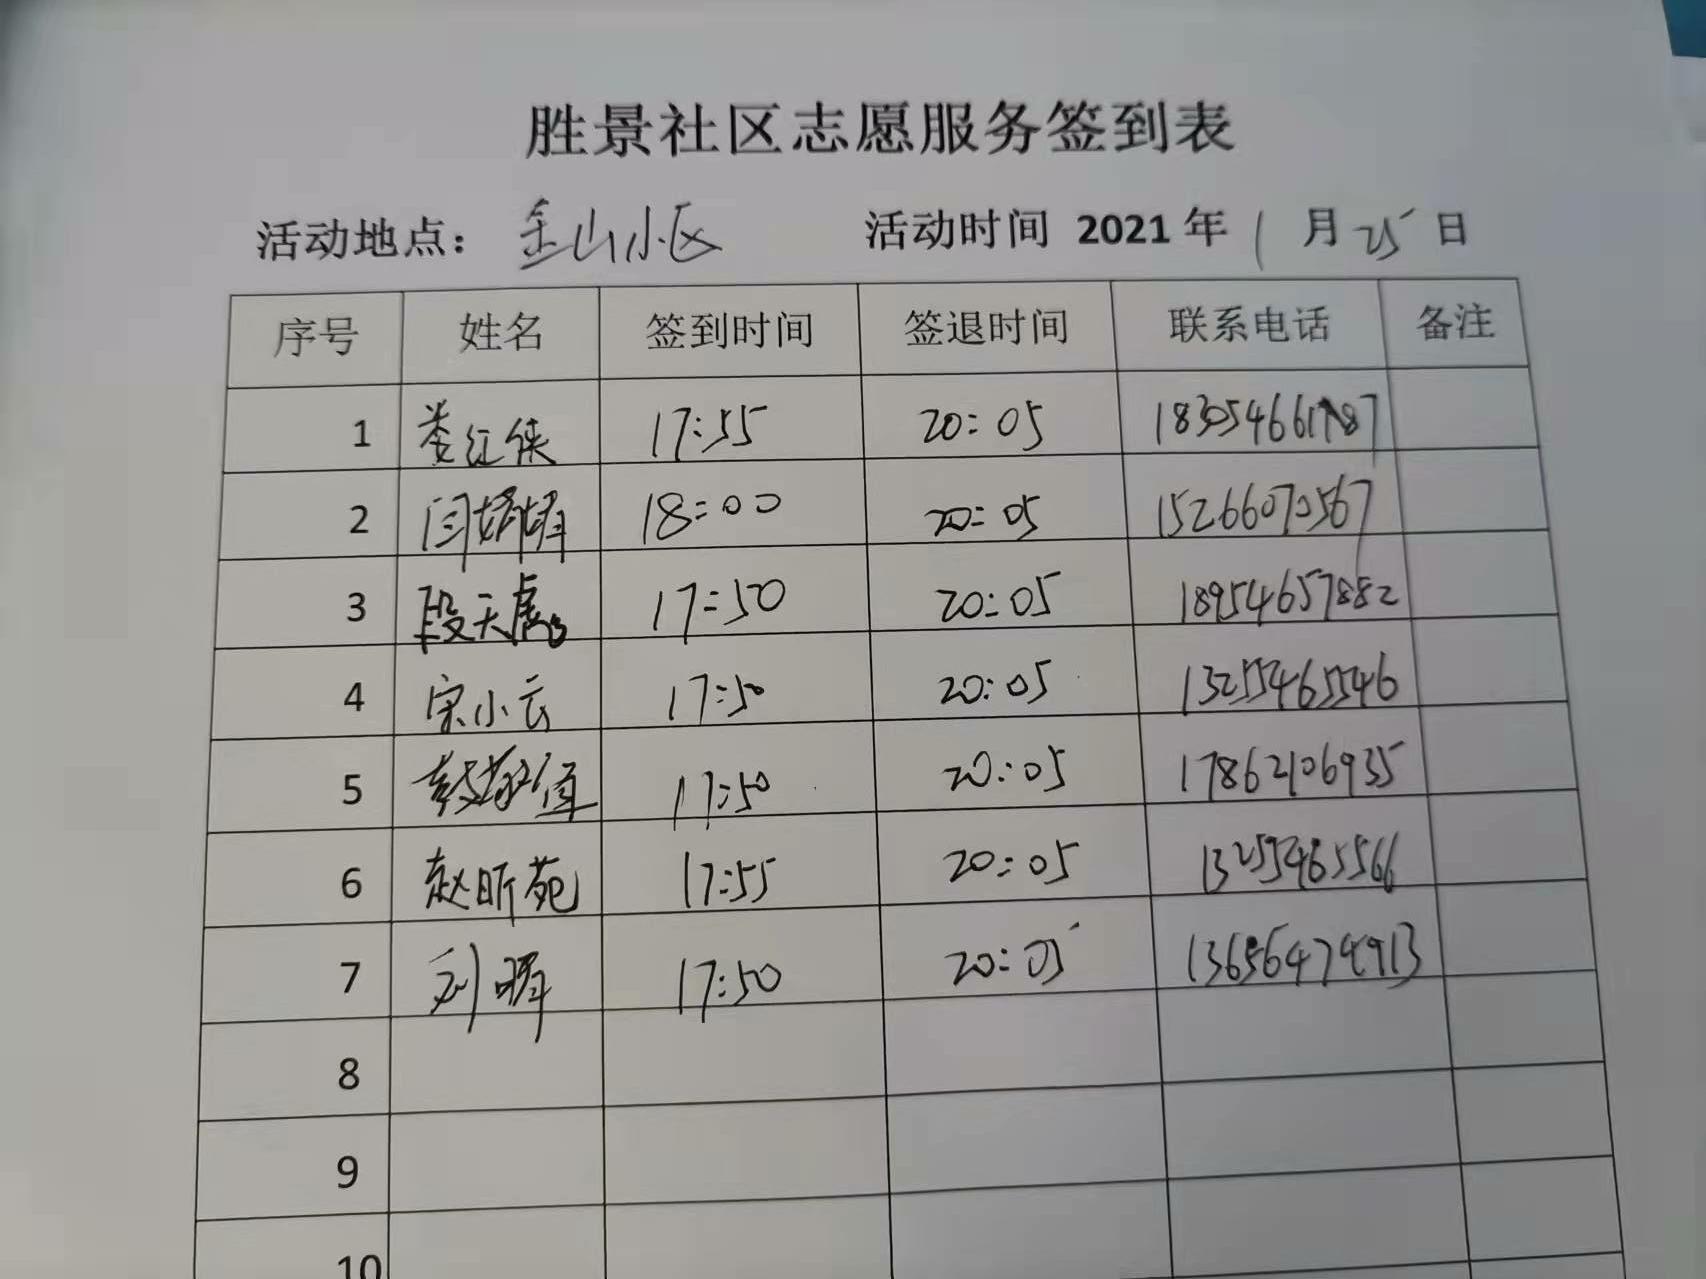 胜景社区志愿服务签到表
活动地点： 金山小区 活动时间 2021 年 1 月 25 日
序号 姓名 签到时间 签退时间 联系电话 备注
1 娄红侠 17:55 20:05
2 闫婧婧 18:00 20:05 15266070567
3 段天虎 17:50 20:05 18954657882
4 宋小云 17:50 20:05 13255465546
5 17:50 20:05 17862106935
6 赵昕苑 17:55 20:05 13255465566
7 刘晖 17:50 20:05
8
9
10